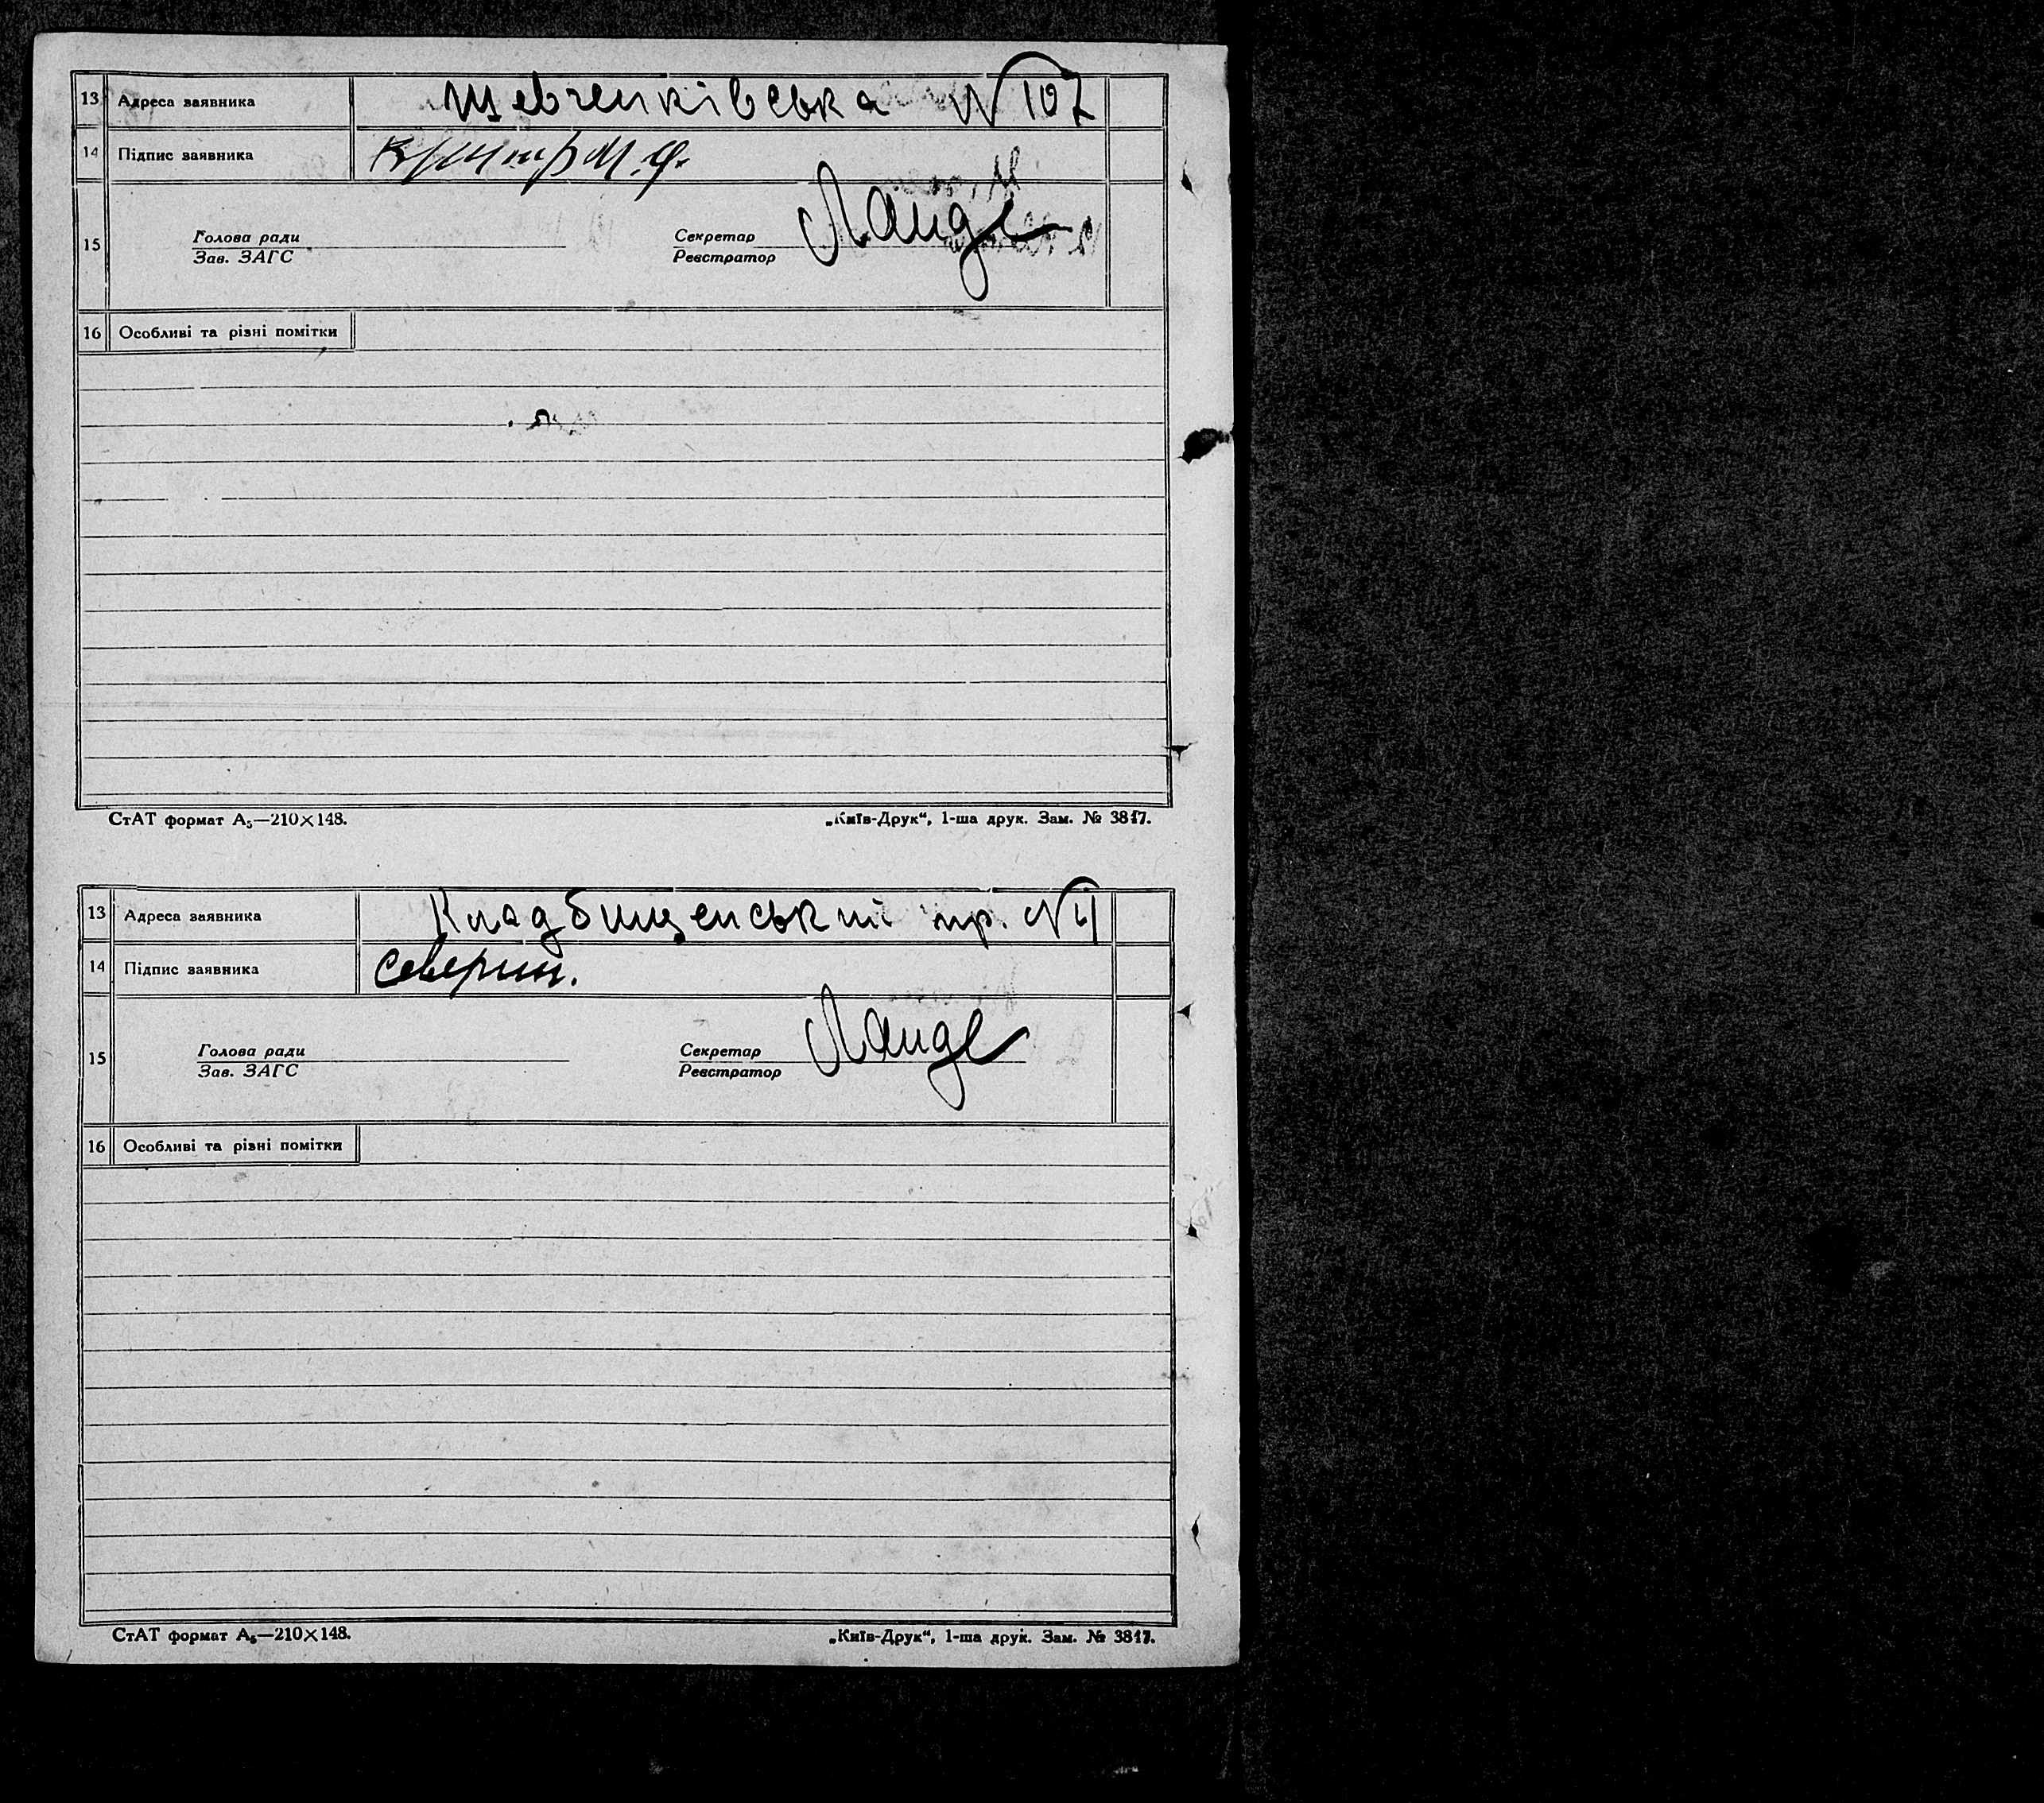 13 Адреса заявника Шевченківська N 107
14 Підпис заявника
15 Голова ради Секретар Ланде
Зав. ЗАГС Реєстратор
16 Особливі та різні помітки
СтАТ формат А₅—210×148. „Київ-Друк“, 1-ша друк. Зам. № 3817.
13 Адреса заявника Кладбищенський пр. N 4
14 Підпис заявника Северин.
15 Голова ради Секретар Ланде
Зав. ЗАГС Реєстратор
16 Особливі та різні помітки
СтАТ формат А₅—210×148. „Київ-Друк“, 1-ша друк. Зам. № 3817.